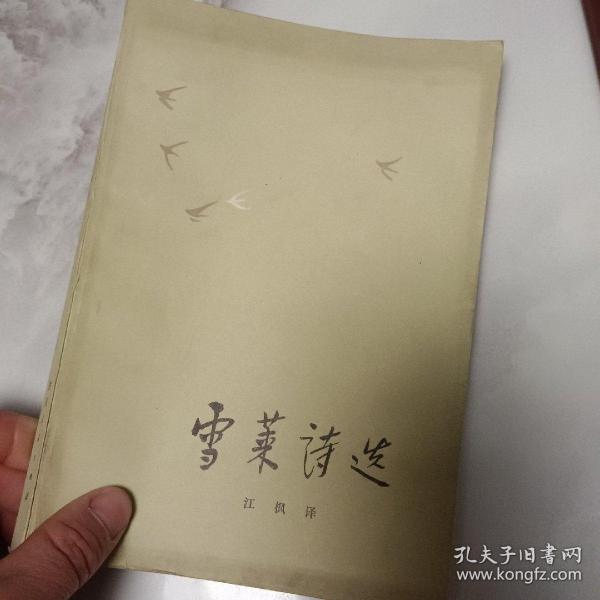 雪莱诗选
江枫译
孔夫子旧書网
www.kongfz.com